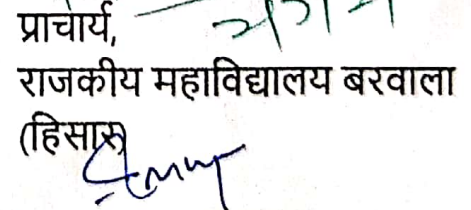 प्राचार्य,
राजकीय महाविद्यालय बरवाला
(हिसार)